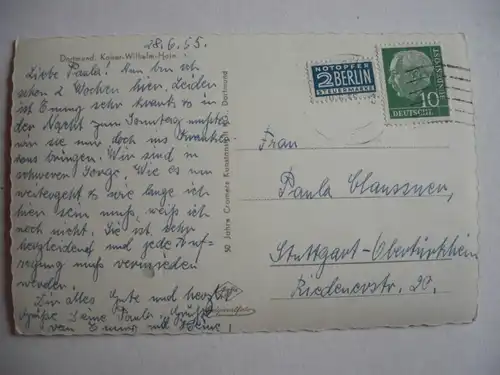 28.6.55.
Dortmund, Kaiser-Wilhelm-Hain
Liebe Paula! Nun bin ich
schon 2 Wochen hier. Leider
ist Emmy sehr krank, so in
der Nacht zum Sonntag mußten
wir sie noch ins Kranken-
haus bringen. Wir sind in
schwerer Sorge. Wie es nun
weitergeht u wie lange ich
hier sein muß, weiß ich
noch nicht. Sie ist sehr
herzleidend und jede Auf-
regung muß vermieden
werden.
Dir alles Gute und herzl.
Grüße Deine Paula. Grüße
von Emmy
50 Jahre Cramers Kunstanstalt KG. Dortmund
NOTOPFER
2 BERLIN
STEUERMARKE
DEUTSCHE
BUNDESPOST
10
Frau
Paula Claussnen,
Stuttgart-Obertürkheim
Riedenerstr. 20.